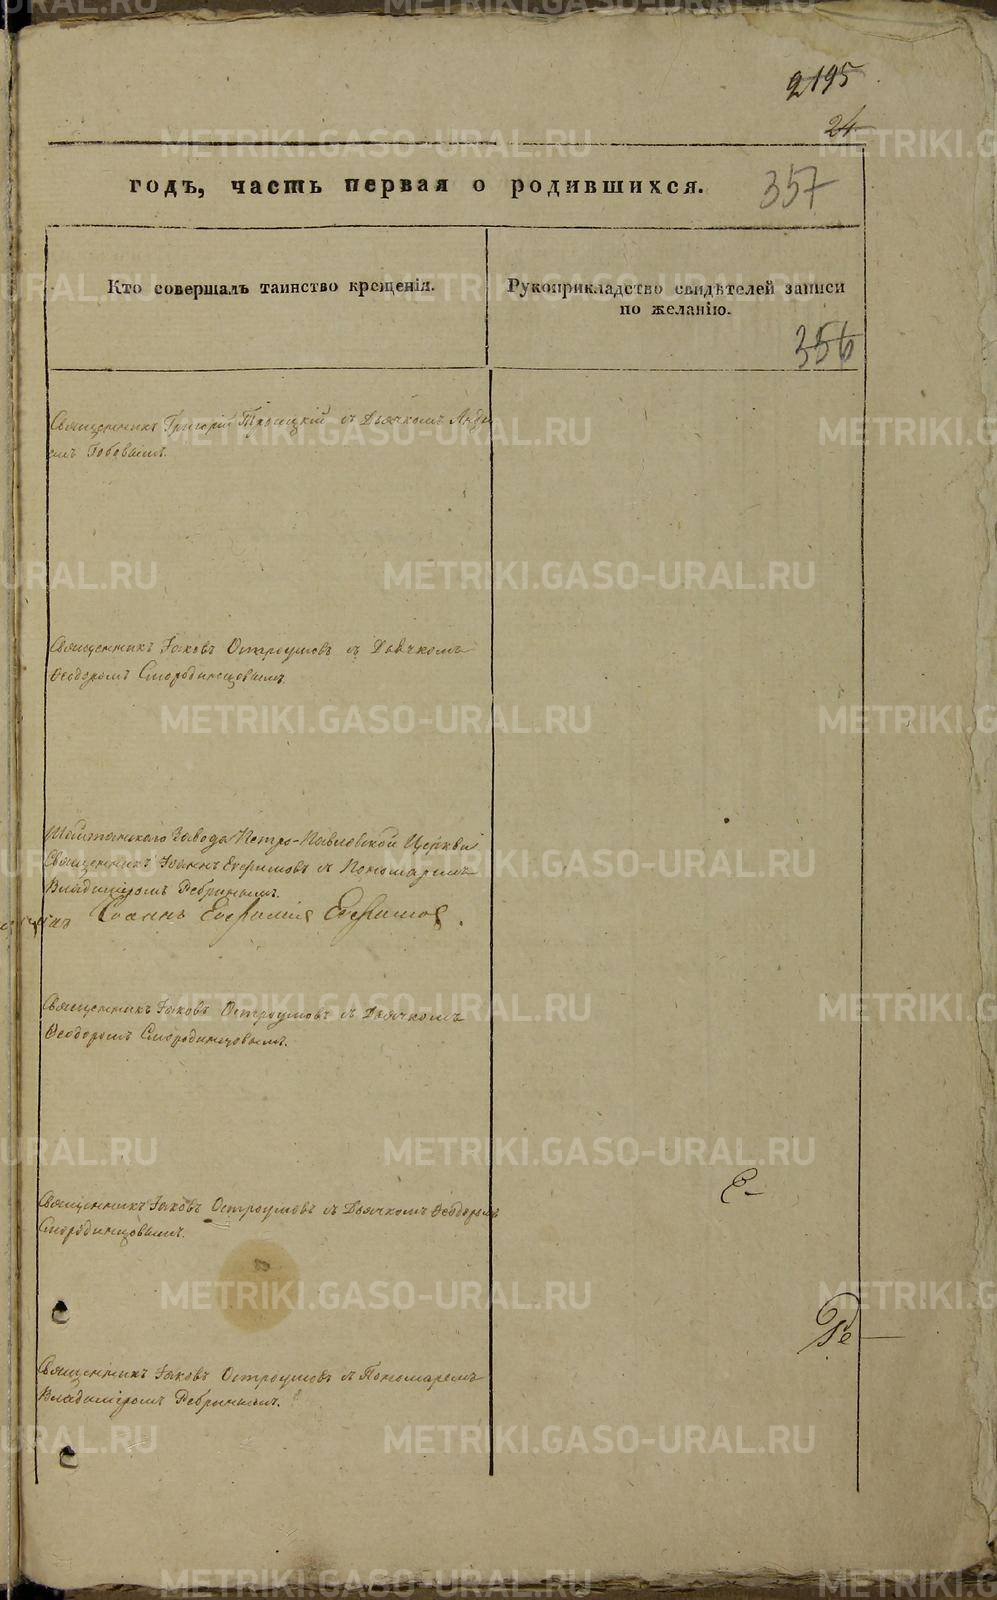 2195
24
годъ, часть первая о родившихся.
357
Кто совершалъ таинство крещенія.
Рукоприкладство свидѣтелей записи
по желанію.
356
Священникъ Григорій Троицкій съ Дьячкомъ
Священникъ Іаковъ Остроумовъ съ Дьячкомъ
Ѳеодоромъ Смородинцовымъ.
Шайтанскаго Завода Петро-Павловской Церкви
Священникъ Іоаннъ Евфимовъ съ Пономаремъ
Владиміромъ Ребринымъ.
Іоаннъ
Священникъ Іаковъ Остроумовъ съ Дьячкомъ
Ѳеодоромъ Смородинцовымъ.
Священникъ Іаковъ Остроумовъ съ Дьячкомъ Ѳеодоромъ
Смородинцовымъ.
Священникъ Іаковъ Остроумовъ съ Пономаремъ
Владиміромъ Ребринымъ.
METRIKI.GASO-URAL.RU